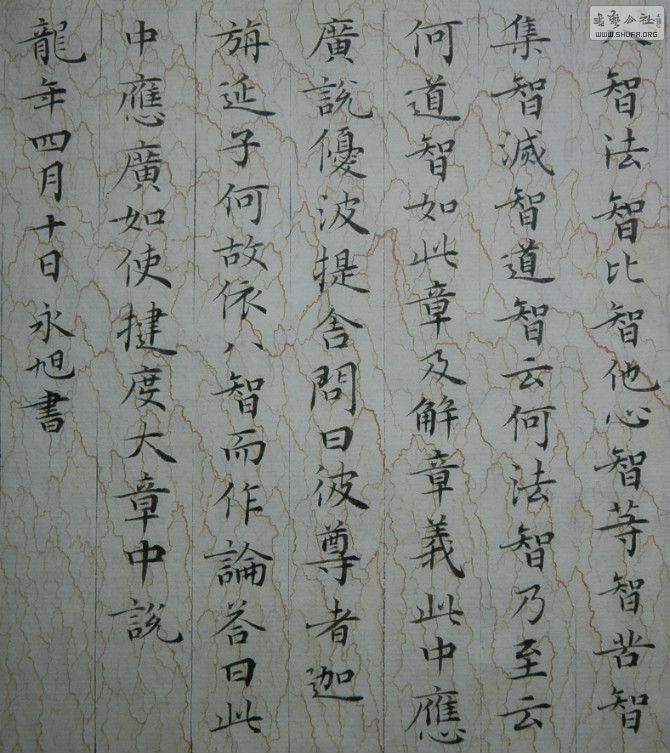 八智法智比智他心智等智苦智
集智滅智道智云何法智乃至云
何道智如此章及解章義此中應
廣說優波提舍問曰彼尊者迦
旃延子何故依八智而作論答曰此
中應廣如使揵度大章中說
龍年四月十日永旭書
書藝公社
WWW.SHUFA.ORG